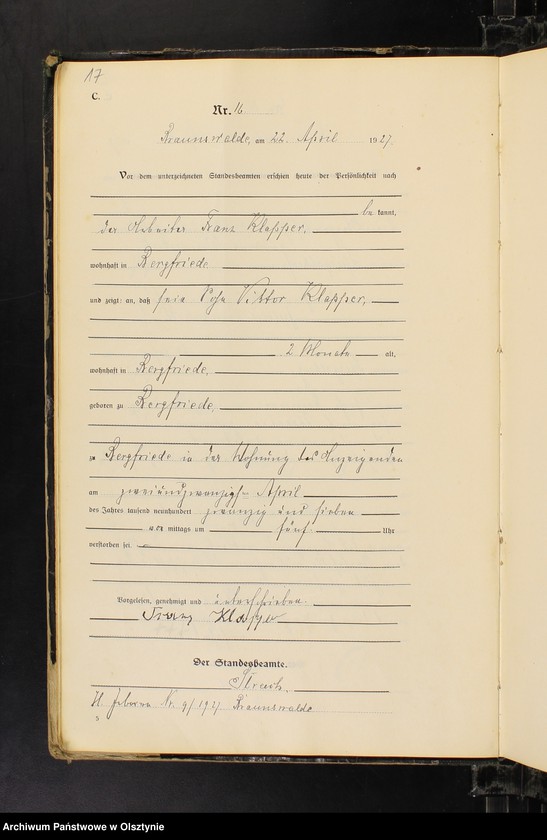 17
C.
Nr. 16
Braunswalde, am 22. April 1927.
Vor dem unterzeichneten Standesbeamten erschien heute der Persönlichkeit nach
be kannt,
der Arbeiter Franz Klapper,
wohnhaft in Bergfriede
und zeigte an, daß sein Sohn Viktor Klapper,
2 Monate alt,
wohnhaft in Bergfriede,
geboren zu Bergfriede,
zu Bergfriede in der Wohnung des Anzeigenden
am zweiundzwanzigsten April
des Jahres tausend neunhundert zwanzig und sieben
vor mittags um fünf Uhr
verstorben sei.
Vorgelesen, genehmigt und unterschrieben
Franz Klapper
Der Standesbeamte.
Nr. 9/1927. Braunswalde
Archiwum Państwowe w Olsztynie